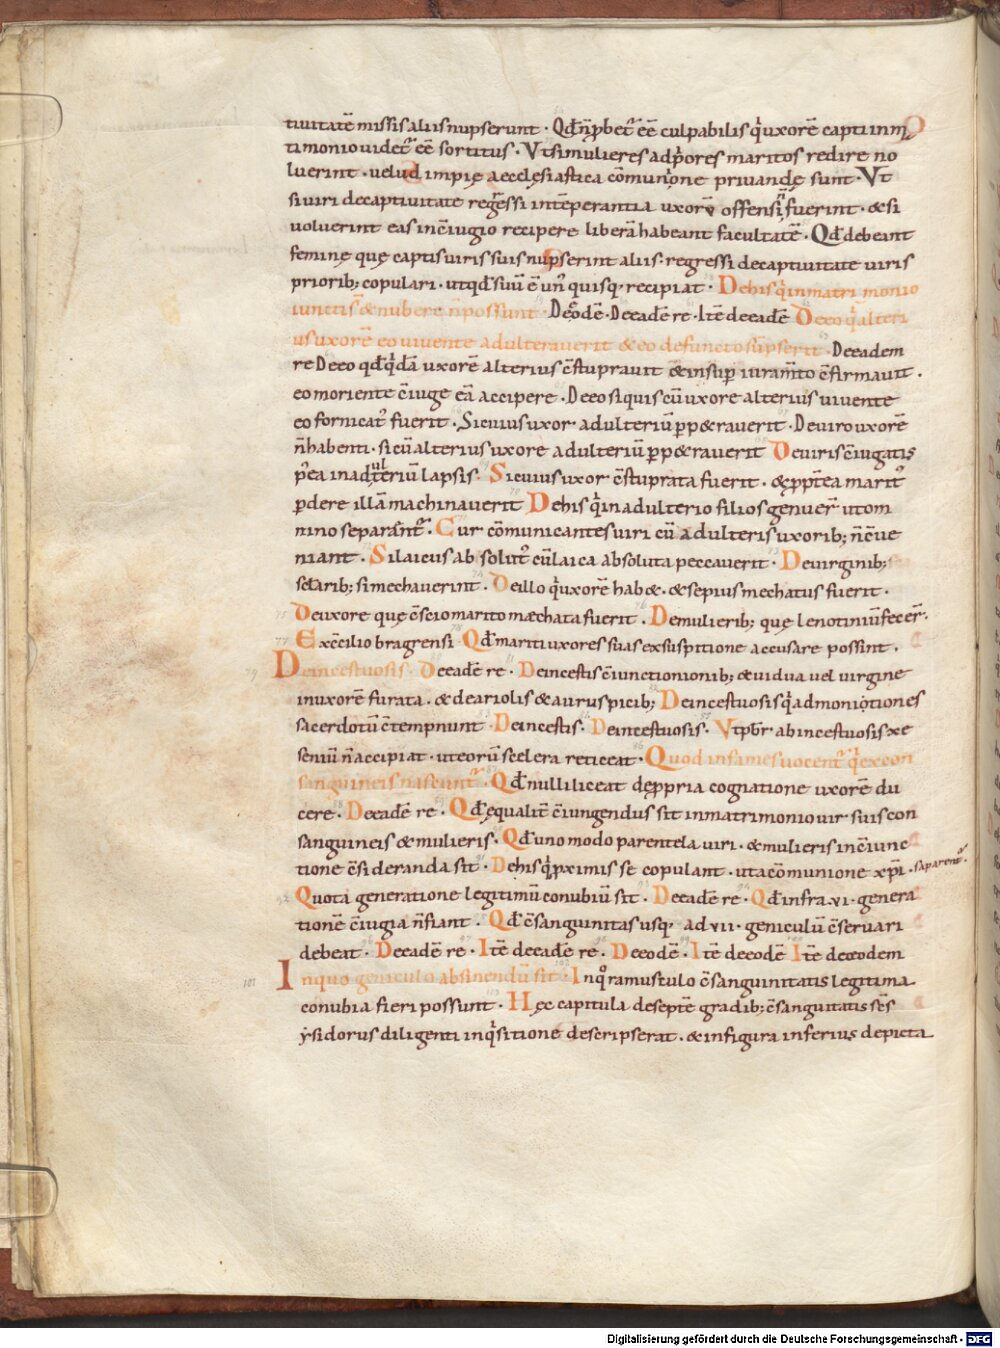 tiuitatē missis aliis nupserunt · Qd̄ n̄ p̱bet᷑ eē culpabilis qͥ uxorē captiui in ma
trimonio uidet᷑ eē sortitus · Vt si mulieres ad p̄ores maritos redire no
luerint · uelud impię aecclesiastica cōmunione priuandę sunt · Vt
si uiri de captiuitate regressi intēperantia uxorū offensi n̄ fuerint · & si
uoluerint eas in c̄iugio recipere liberā habeant facultatē · Qd̄ debeant
feminę quę captis uiris suis nupserint aliis · regressi de captiuitate uiris
priorib; copulari · ut qd̄ suū ē un᷒quisq· recipiat · De his qͥ in matrimonio
iunctis & nubere n̄ possunt · De eodē · De eadē re · Itē de eadē De eo qͥ alteri
us uxorē eo uiuente adulterauerit & eo defuncto sūpserit · De eadem
re De eo qd̄ qͥdā uxorē alterius c̄stuprauit & insup̱ iuram̄to c̄firmauit ·
eo moriente c̄iuge eā accipere · De eo si quis cū uxore alterius uiuente
eo fornicat᷒ fuerit · Si cuius uxor adulteriū p̱p&rauerit · De uiro uxorē
n̄ habenti · si cū alterius uxore adulteriū p̱p&rauerit De uiris c̄iugatis
p᷒ea in adulteriū lapsis · Si cuius uxor c̄stuprata fuerit · & p̱p̄tea marit᷒
p̱dere illā machinauerit De his qͥ in adulterio filios genuer̄ ut om
nino separent᷑ · Cur cōmunicantes uiri cū adulteris uxorib; n̄ c̄ue
niant · Si laicus absolut᷒ cū laica absoluta peccauerit · De uirginib;
sclarib; si mechauerint · De illo qͥ uxorē hab& · & sepius mechatus fuerit ·
De uxore quę c̄scio marito mæchata fuerit · De mulierib; quę lenotiniū fecer̄ ·
Ex c̄cilio bragrensi Qd̄ mariti uxores suas ex suspitione accusare possint ·
De incestuosis · De eadē re · De incestis c̄iunctionionib; & uidua uel uirgine
in uxorē furata · & de ariolis & auruspicib; De incestuosis qͥ admonitiones
sacerdotū c̄tempnunt · De incestis · De incestuosis · Vt pb̄r ab incestuosis xe
seniū n̄ accipiat · ut eorū scelera reticeat · Quod infames uocent᷑ qͥ ex con
sanguineis nascunt᷑ · Qd̄ nulli liceat de p̱pria cognatione uxorē du
cere · De eadē re · Qd̄ ęqualit̄ c̄iungendus sit in matrimonio uir suis con
sanguineis & mulieris · Qd̄ uno modo parentela uiri · & mulieris in c̄iunc
tione c̄sideranda sit · De his qͥ p̱ximis se copulant · ut a cōmunione xp̄i · separent᷑ ·
Quota generatione legitimū conubiū sit · De eadē re · Qd̄ infra · vi · genera
tionē c̄iugia n̄ fiant · Qd̄ c̄sanguinitas usq· ad vii · geniculū c̄seruari
debeat · De eadē re · Itē de eadē re · De eodē · Itē de eodē Itē de eodem
In quo geniculo absinendū sit · In qͦ ramusculo c̄sanguinitatis legitima
conubia fieri possunt · Hęc capitula de septē gradib; c̄sanguitatis sc̄s
ysidorus diligenti inqͥsitione descripserat · & in figura inferius depicta
Digitalisierung gefördert durch die Deutsche Forschungsgemeinschaft - DFG